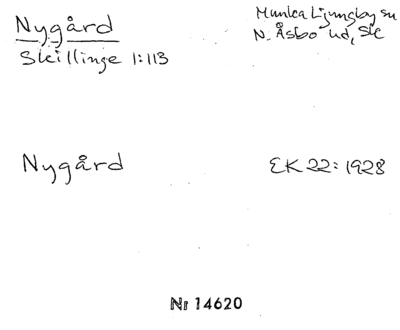 Nygård
Munka Ljungby sn
Skillinge 1:113
N. Åsbo hd, Sk
Nygård
EK 22: 1928
Nr 14620